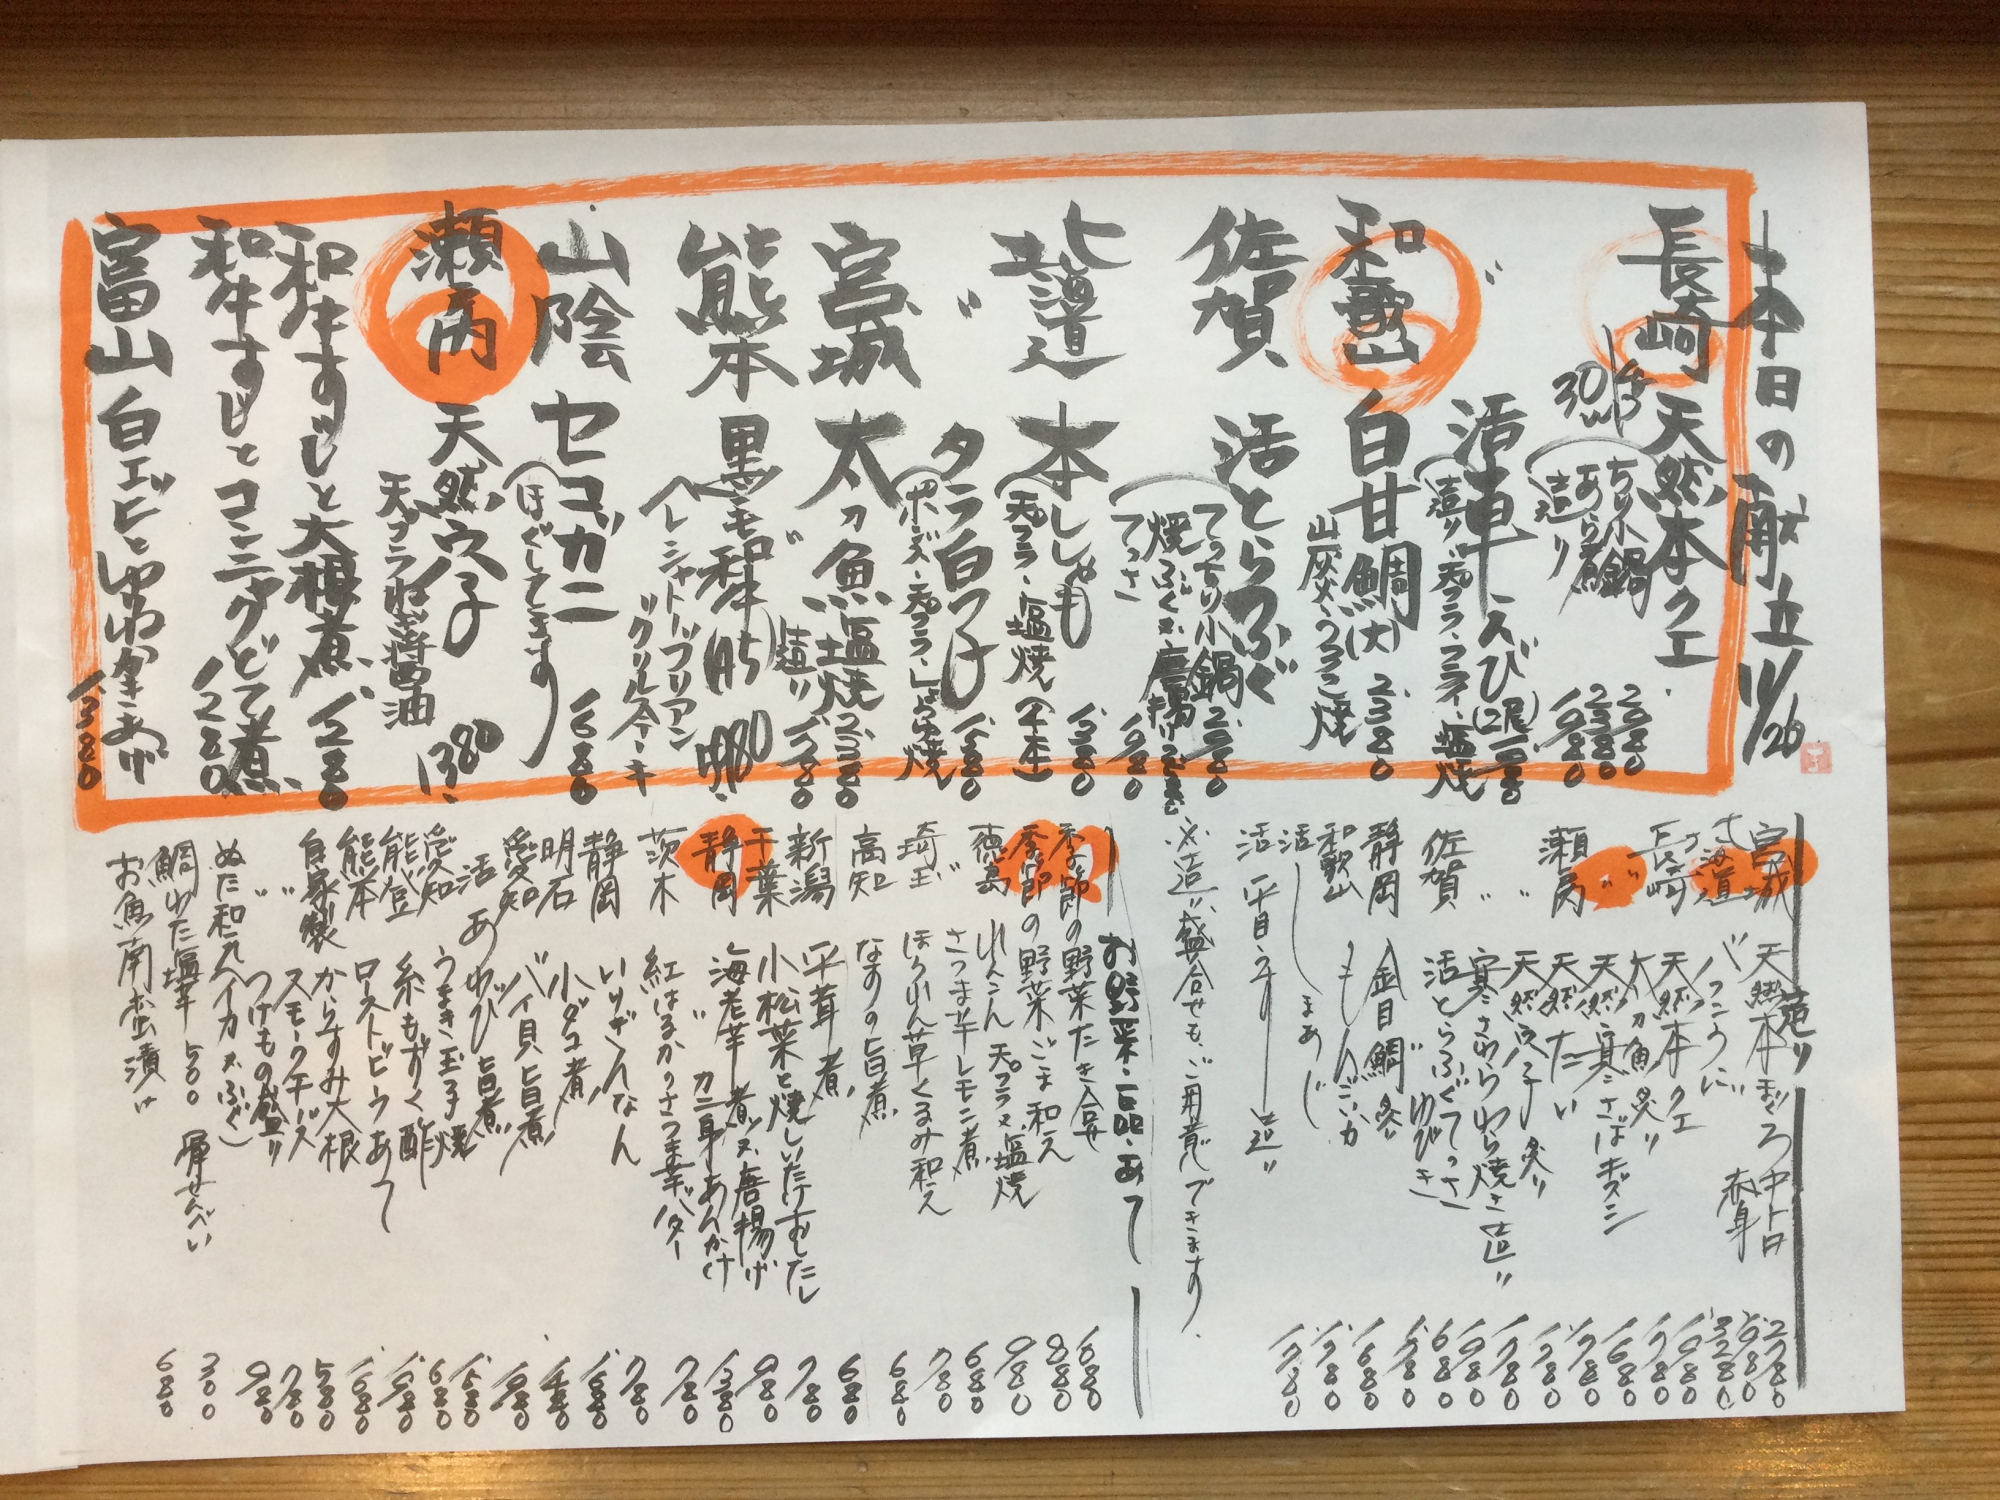 本日の献立 11/26
長崎 天然本クエ
ちり小鍋 2980
あら煮 2380
造り 1980
〃 活車えび(2尾)
造り・天プラ・フライ・塩焼
和歌山 白甘鯛(大) 2380
山灰炙・うろこ焼
佐賀 活とらふぐ
てっちり小鍋
焼ふぐ又唐揚げ
てっさ 1980
北海道 本ししゃも 1380
天プラ・塩焼(4本)
〃 タラ白子 1680
ポン天プラ
宮城 太刀魚塩焼 2380
〃造り 1780
熊本 黒毛和牛(A5)
ヘレシャトーブリアン
山陰 セコガニ 1680
(ほぐしてます)
瀬戸内 天然穴子 1380
天プラねぎ醤油
和牛すじと大根煮 1280
和牛すじとコンニャクどて煮 1280
富山 白エビとゆわかまあげ 1380
造り
宮城 天然本まぐろ 中トロ 2780
赤身 1980
北海道 バフンうに
長崎 天然本クエ 1980
〃 太刀魚炙り 1780
〃 天然寒さばキズシ 1680
瀬戸内 天然たい 1780
〃 天然穴子 炙り 1780
〃 寒さわらわら焼き造り 1780
佐賀 活とらふぐてっさ 1980
〃 ゆびき 680
静岡 金目鯛 炙り
和歌山 もんごいか
活 まあじ
活 平目うす造り 1780
※造り盛合せもご用意できます。
お野菜・一品・あて
季節の野菜たき合せ
季節の野菜ごま和え 880
徳島 れんこん 天プラ又塩焼 980
〃 さつま芋レモン煮 680
埼玉 ほうれん草くるみ和え 780
高知 なすの旨煮 680
新潟 平茸煮 680
千葉 小松菜と焼しいたけおひたし 780
静岡 海老芋 煮又唐揚げ 980
〃 カニ身あんかけ 1380
茨木 紅はるかのさつま芋バター 780
静岡 いりぎんなん 780
明石 小ダコ煮
愛知 バイ貝旨煮
活あわび旨煮
愛知 うまき玉子焼
能登 糸もずく酢 680
熊本 ローストビーフあて
自家製 からすみ大根
〃 スモークチーズ 580
〃 つけもの盛り 780
ぬた和え(イカ又ふぐ) 980
鯛わた塩辛 500 骨せんべい 300
お魚南蛮漬け 680